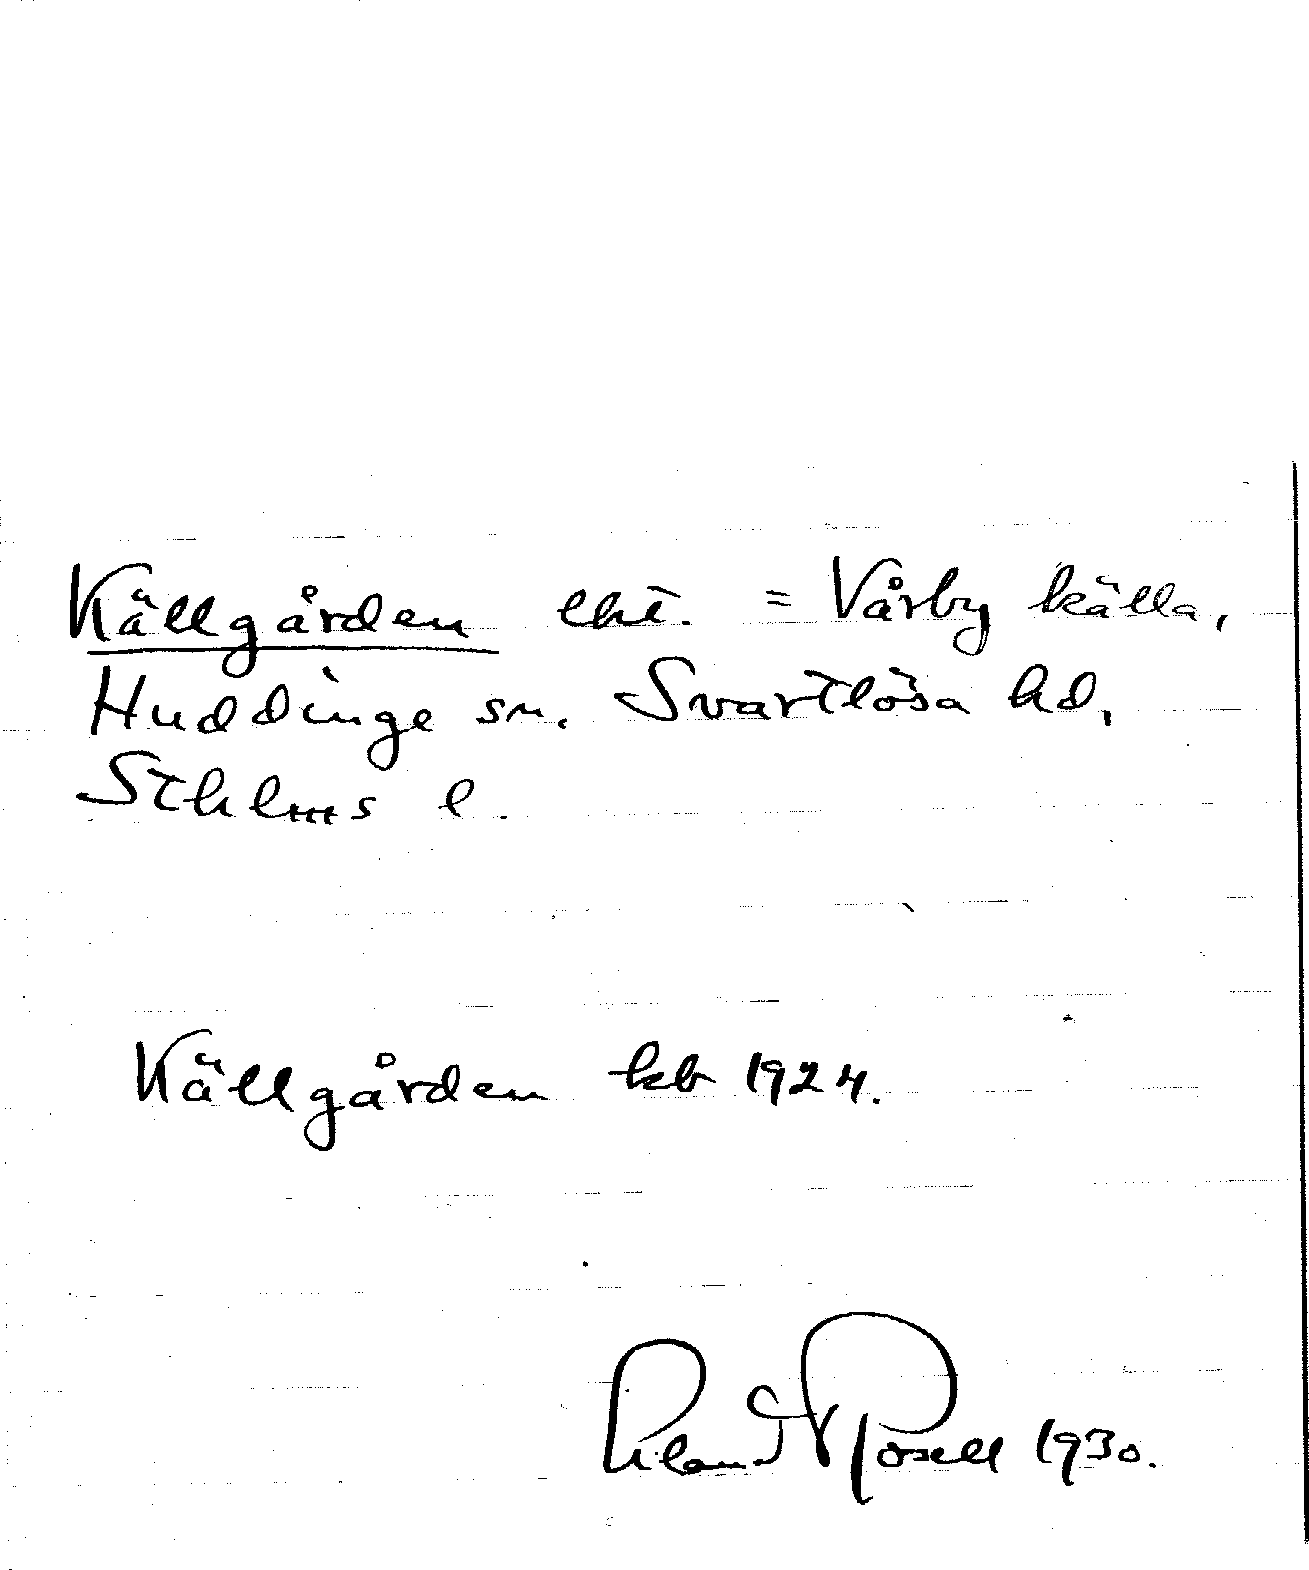 Källgården lht. = Vårby källa,
Huddinge sn. Svartlösa hd,
Sthlms l.
Källgården kb 1924.
Rosell 1930.